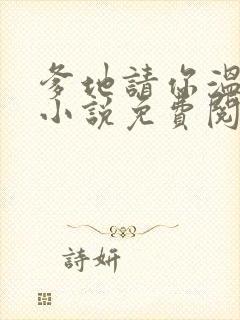 爹地請你溫
小説免費閱
詩妍